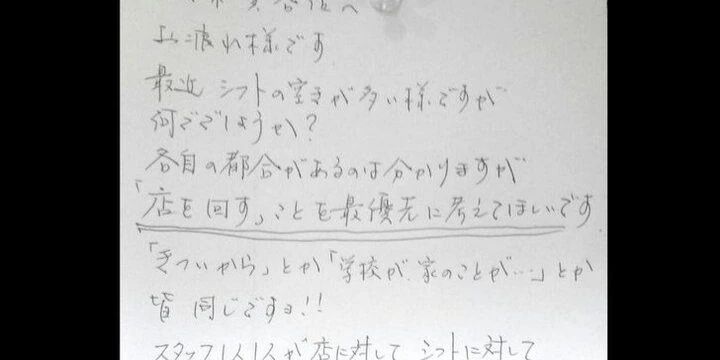 お疲れ様です
最近 シフトの空きが多い様ですが
何ででしょうか?
各自の都合があるのは分かりますが
「店を回す」ことを最優先に考えてほしいです
「きついから」とか「学校が、家のことが…」とか
皆 同じですョ!!
スタッフ1人1人が店に対して シフトに対して